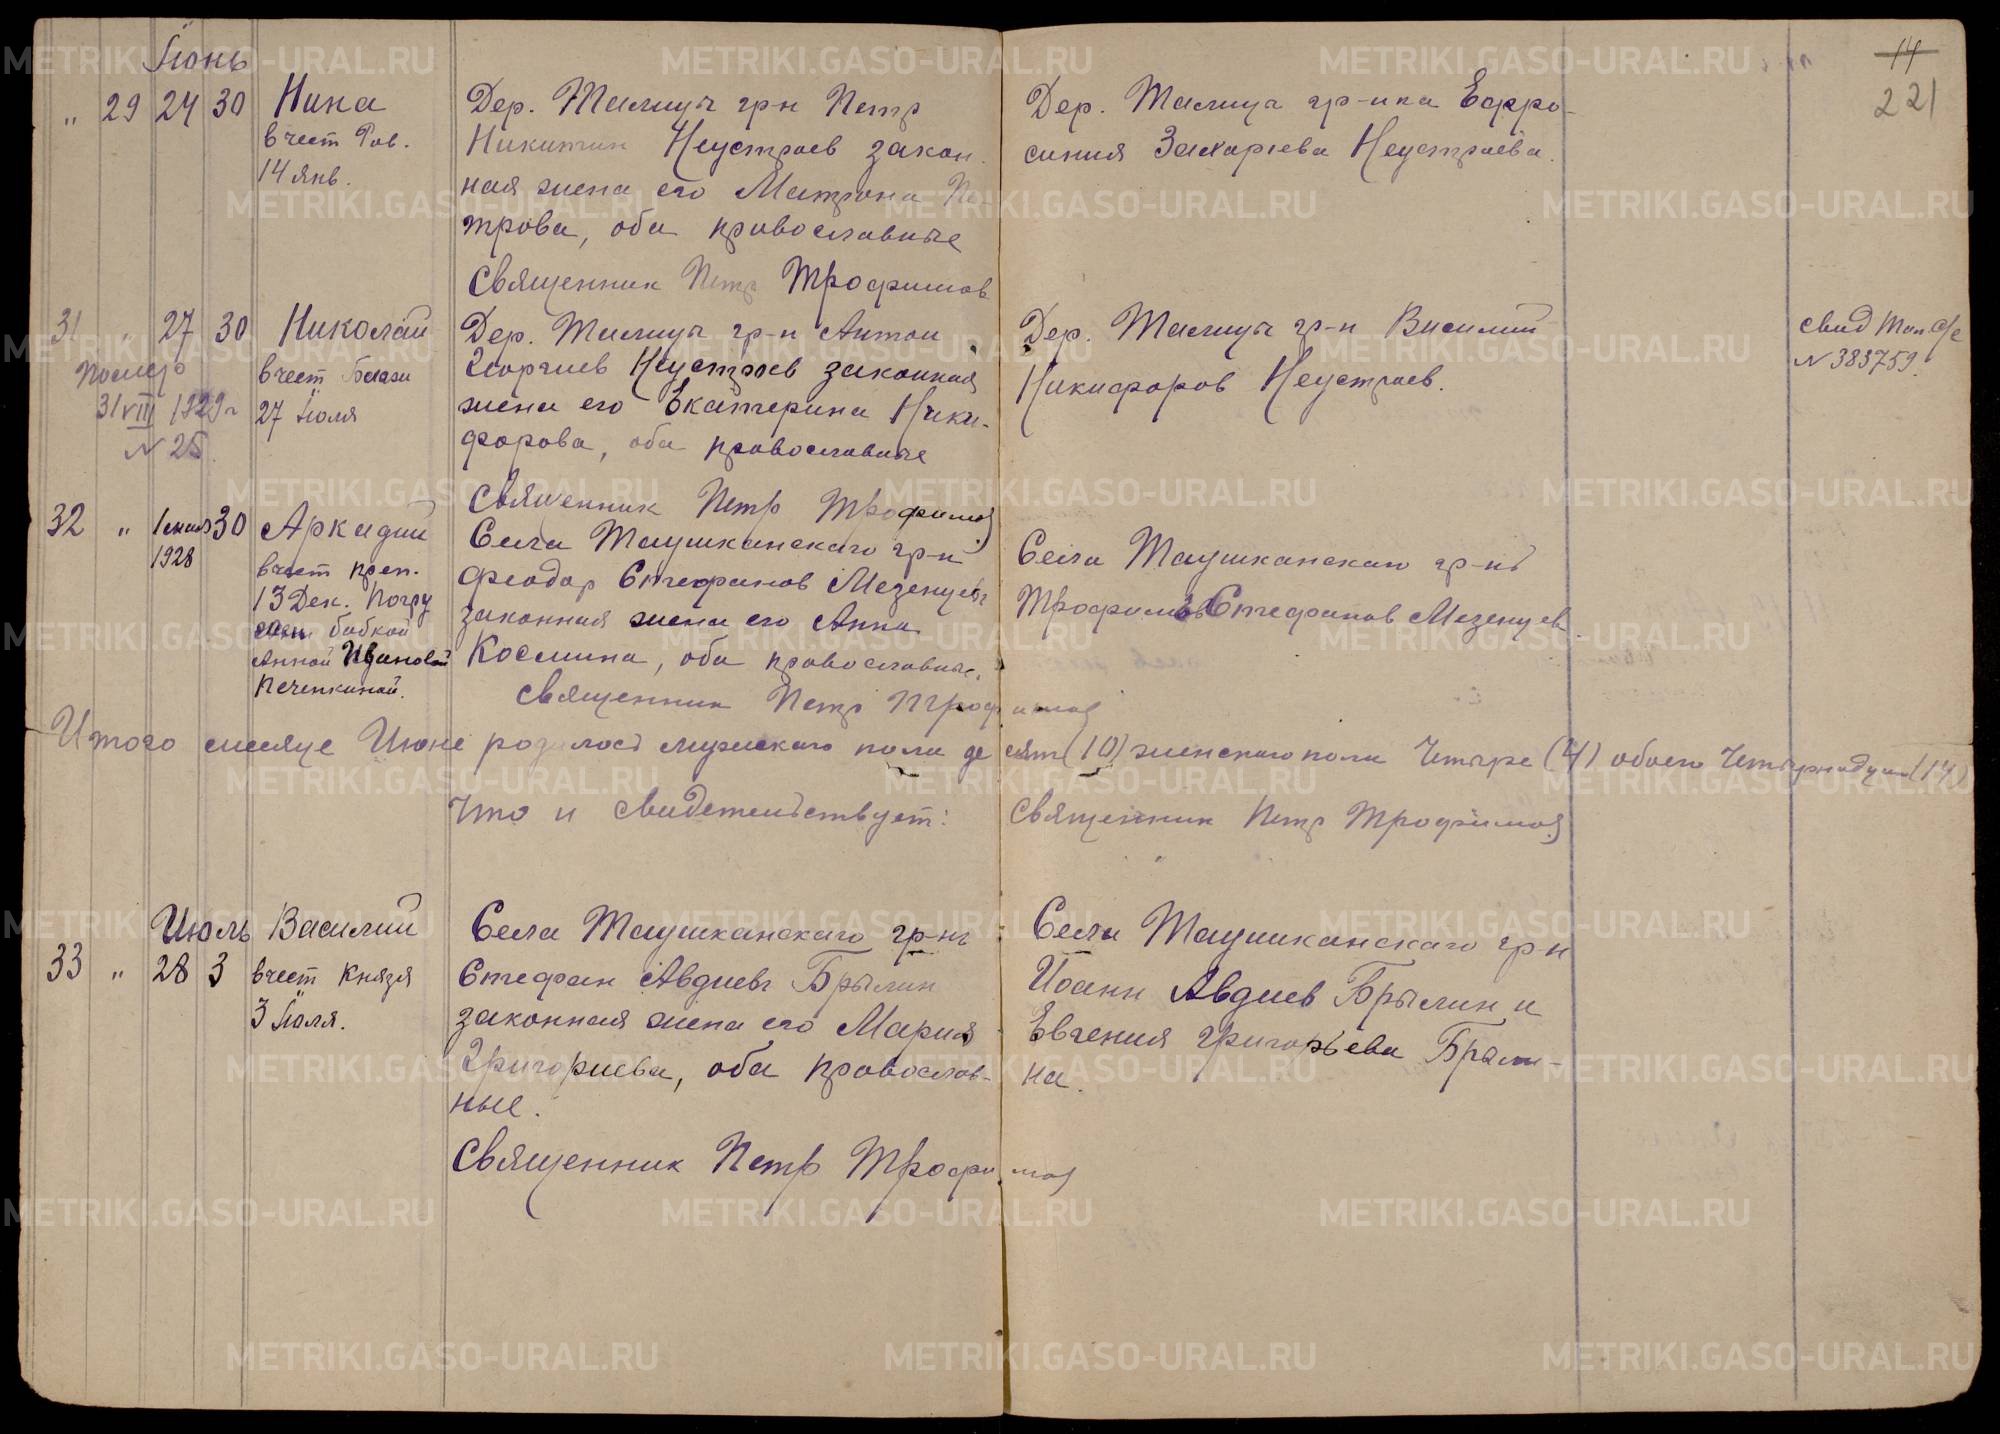 14
221
Іюнь
" 29 24 30 Нина
в чест Рав.
14 янв.
Дер. Талица гр-н Петр
Никитин Неустроев закон
ная жена его Матрона Пе-
трова, оба православные
Священник Петр Трофимов
Дер. Талица гр-нка Ефро-
синия Захарьева Неустроева.
31 " 27 30 Николай
в чест Блажен
27 Іюля
31 VIII 1929 г
N 25
Дер. Талица гр-н Антон
Георгиев Неустроев законная
жена его Екатерина Ники-
форова, оба православные
Священник Петр Трофимов
Дер. Талица гр-н Василий
Никифоров Неустроев.
свид
N 383759.
32 " 1 мая 30 Аркадий
1928
в чест преп.
13 Дек. Погру
жен бабкой
Анной Ивановой
Печенкиной.
Села Таушканскаго гр-н
Феодор Стефанов Мезенцев
законная жена его Анна
Космина, оба православные.
Священник Петр Трофимов
Села Таушканскаго гр-нъ
Трофимъ Стефанов Мезенцев.
Итого месяце Июне родилось мужескаго пола десять (10) женскаго пола Четыре (4) обоего Четырнадцать (14)
Что и свидетельствует: Священник Петр Трофимов
Июль
33 " 28 3 Василий
в чест Князя
3 Іюля.
Села Таушканскаго гр-нъ
Стефан Авдиевъ Брылин
законная жена его Мария
Григориева, оба православ-
ные.
Священник Петр Трофимов
Села Таушканскаго гр-н
Иоанн Авдиев Брылин и
Евгения Григорьева Брыли-
на.
METRIKI.GASO-URAL.RU